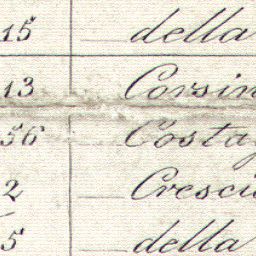 15 della
13 Corsin
56 Costa
2 Cresci
5 della